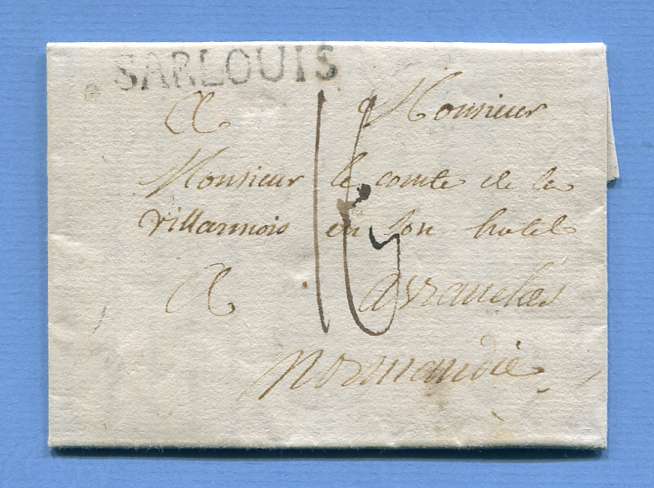 SARLOUIS
A Monsieur
Monsieur le comte de la
villarmois en son hotel
A avranches
Normandie